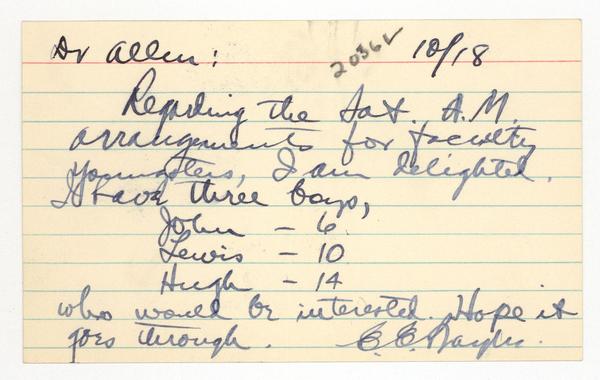 Dr Allen: 10/18
20362
Regarding the Sat. A.M.
arrangements for faculty
youngsters, I am delighted.
I have three boys,
John - 6
Lewis - 10
Hugh - 14
who would be interested. Hope it
goes through. C.C.